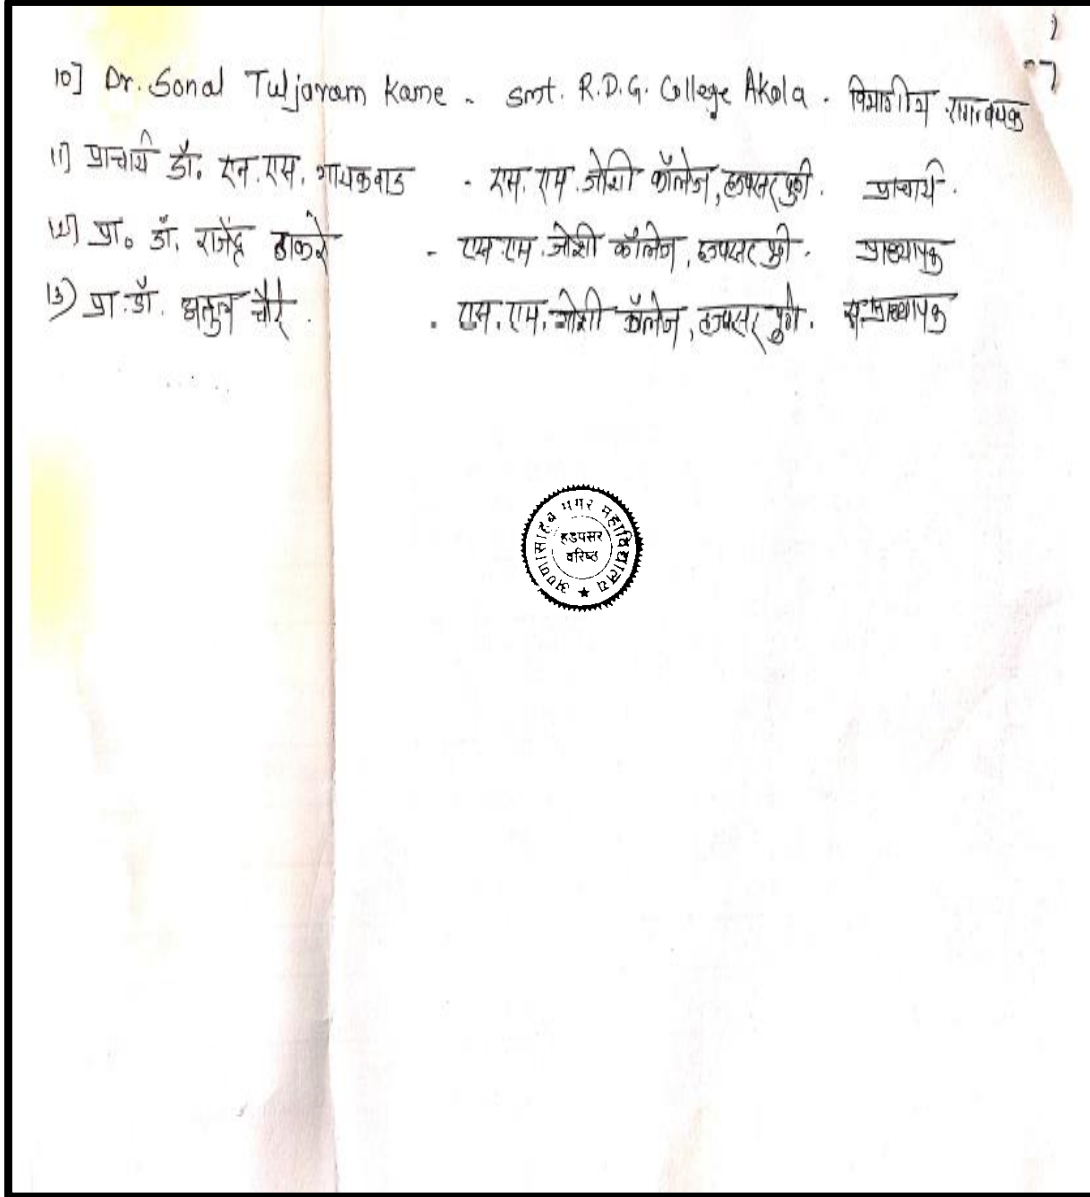 10] Dr. Sonal Tuljaram Kame - smt. R.D.G. College Akola . विभागीय समन्वयक
11] प्राचार्य डॉ. एन.एस. गायकवाड - एस. एम. जोशी कॉलेज, हडपसर पुणे. प्राचार्य.
12] प्रा. डॉ. राजेंद्र ठाकरे - एस.एम.जोशी कॉलेज, हडपसर पुणे. प्राध्यापक
13) प्रा.डॉ. अतुल चौरे . . एस.एम.जोशी कॉलेज, हडपसर पुणे. स.प्राध्यापक
अण्णासाहेब मगर महाविद्यालय
हडपसर
वरिष्ठ